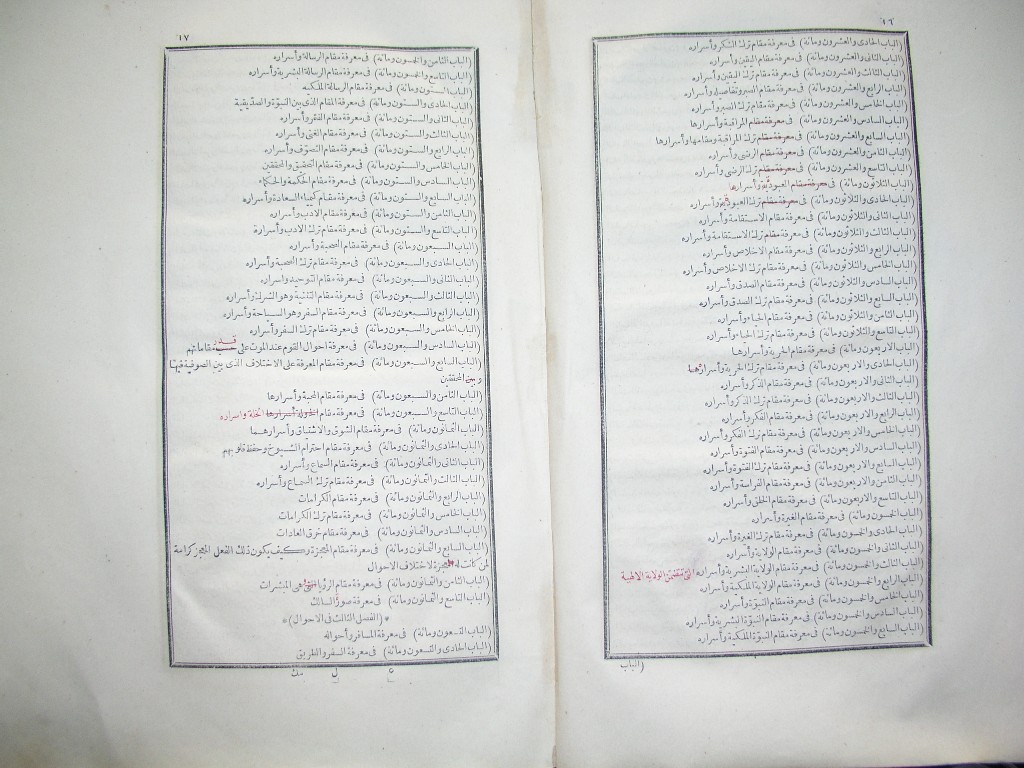 ١٦
(الباب الحادى والعشرون ومائة) فى معرفة مقام ترك الشكر وأسراره
(الباب الثانى والعشرون ومائة) فى معرفة مقام اليقين وأسراره
(الباب الثالث والعشرون ومائة) فى معرفة مقام ترك اليقين وأسراره
(الباب الرابع والعشرون ومائة) فى معرفة مقام الصبر وتفاصيله وأسراره
(الباب الخامس والعشرون ومائة) فى معرفة مقام ترك الصبر وأسراره
(الباب السادس والعشرون ومائة) فى معرفة مقام المراقبة وأسرارها
(الباب السابع والعشرون ومائة) فى معرفة مقام ترك المراقبة ومقامها وأسرارها
(الباب الثامن والعشرون ومائة) فى معرفة مقام الرضى وأسراره
(الباب التاسع والعشرون ومائة) فى معرفة مقام ترك الرضى وأسراره
(الباب الثلاثون ومائة) فى معرفة مقام العبودية وأسرارها
(الباب الحادى والثلاثون ومائة) فى معرفة مقام ترك العبودية وأسراره
(الباب الثانى والثلاثون ومائة) فى معرفة مقام الاستقامة وأسراره
(الباب الثالث والثلاثون ومائة) فى معرفة مقام ترك الاستقامة وأسراره
(الباب الرابع والثلاثون ومائة) فى معرفة مقام الاخلاص وأسراره
(الباب الخامس والثلاثون ومائة) فى معرفة مقام ترك الاخلاص وأسراره
(الباب السادس والثلاثون ومائة) فى معرفة مقام الصدق وأسراره
(الباب السابع والثلاثون ومائة) فى معرفة مقام ترك الصدق وأسراره
(الباب الثامن والثلاثون ومائة) فى معرفة مقام الحياء وأسراره
(الباب التاسع والثلاثون ومائة) فى معرفة مقام ترك الحياء وأسراره
(الباب الاربعون ومائة) فى معرفة مقام الحرية وأسرارها
(الباب الحادى والاربعون ومائة) فى معرفة مقام ترك الحرية وأسرارها
(الباب الثانى والاربعون ومائة) فى معرفة مقام الذكر وأسراره
(الباب الثالث والاربعون ومائة) فى معرفة مقام ترك الذكر وأسراره
(الباب الرابع والاربعون ومائة) فى معرفة مقام الفكر وأسراره
(الباب الخامس والاربعون ومائة) فى معرفة مقام ترك الفكر وأسراره
(الباب السادس والاربعون ومائة) فى معرفة مقام الفتوة وأسراره
(الباب السابع والاربعون ومائة) فى معرفة مقام ترك الفتوة وأسراره
(الباب الثامن والاربعون ومائة) فى معرفة مقام الفراسة وأسراره
(الباب التاسع والاربعون ومائة) فى معرفة مقام الخلق وأسراره
(الباب الخمسون ومائة) فى معرفة مقام الغيرة وأسراره
(الباب الحادى والخمسون ومائة) فى معرفة مقام ترك الغيرة وأسراره
(الباب الثانى والخمسون ومائة) فى معرفة مقام الولاية وأسراره
(الباب الثالث والخمسون ومائة) فى معرفة مقام الولاية البشرية وأسراره التى تتضمن الولاية الالهية
(الباب الرابع والخمسون ومائة) فى معرفة مقام الولاية الملكية وأسراره
(الباب الخامس والخمسون ومائة) فى معرفة مقام النبوة وأسراره
(الباب السادس والخمسون ومائة) فى معرفة مقام النبوة البشرية وأسراره
(الباب السابع والخمسون ومائة) فى معرفة مقام النبوة الملكية وأسراره
(الباب
١٧
(الباب الثامن والخمسون ومائة) فى معرفة مقام الرسالة وأسراره
(الباب التاسع والخمسون ومائة) فى معرفة مقام الرسالة البشرية وأسراره
(الباب الستون ومائة) فى معرفة مقام الرسالة الملكية
(الباب الحادى والستون ومائة) فى معرفة المقام الذى بين النبوة والصديقية
(الباب الثانى والستون ومائة) فى معرفة مقام الفقر وأسراره
(الباب الثالث والستون ومائة) فى معرفة مقام الغنى وأسراره
(الباب الرابع والستون ومائة) فى معرفة مقام التصوف وأسراره
(الباب الخامس والستون ومائة) فى معرفة مقام التحقيق والمحققين
(الباب السادس والستون ومائة) فى معرفة مقام الحكمة والحكماء
(الباب السابع والستون ومائة) فى معرفة مقام كيمياء السعادة وأسراره
(الباب الثامن والستون ومائة) فى معرفة مقام الادب وأسراره
(الباب التاسع والستون ومائة) فى معرفة مقام ترك الادب وأسراره
(الباب السبعون ومائة) فى معرفة مقام الصحبة وأسراره
(الباب الحادى والسبعون ومائة) فى معرفة مقام ترك الصحبة وأسراره
(الباب الثانى والسبعون ومائة) فى معرفة مقام التوحيد وأسراره
(الباب الثالث والسبعون ومائة) فى معرفة مقام التثنية وهو الشرك وأسراره
(الباب الرابع والسبعون ومائة) فى معرفة مقام السفر وهو السياحة وأسراره
(الباب الخامس والسبعون ومائة) فى معرفة مقام ترك السفر وأسراره
(الباب السادس والسبعون ومائة) فى معرفة احوال القوم عند الموت على حسب قدر مقاماتهم
(الباب السابع والسبعون ومائة) فى معرفة مقام المعرفة على الاختلاف الذى بين الصوفية فيها
وبين المحققين
(الباب الثامن والسبعون ومائة) فى معرفة مقام المحبة وأسرارها
(الباب التاسع والسبعون ومائة) فى معرفة مقام الخلة واسراره
(الباب الثمانون ومائة) فى معرفة مقام الشوق والاشتياق وأسرارهما
(الباب الحادى والثمانون ومائة) فى معرفة مقام احترام الشيوخ وحفظ قلوبهم
(الباب الثانى والثمانون ومائة) فى معرفة مقام السماع وأسراره
(الباب الثالث والثمانون ومائة) فى معرفة مقام ترك السماع وأسراره
(الباب الرابع والثمانون ومائة) فى معرفة مقام الكرامات
(الباب الخامس والثمانون ومائة) فى معرفة مقام ترك الكرامات
(الباب السادس والثمانون ومائة) فى معرفة مقام خرق العادات
(الباب السابع والثمانون ومائة) فى معرفة مقام المعجزة وكيف يكون ذلك الفعل المعجز كرامة
لمن كانت له معجزة لاختلاف الاحوال
(الباب الثامن والثمانون ومائة) فى معرفة مقام الرؤيا وهى المبشرات
(الباب التاسع والثمانون ومائة) فى معرفة صورة السالك
*(الفصل الثالث فى الاحوال)*
(الباب التسعون ومائة) فى معرفة المسافر وأحواله
(الباب الحادى والتسعون ومائة) فى معرفة السفر والطريق